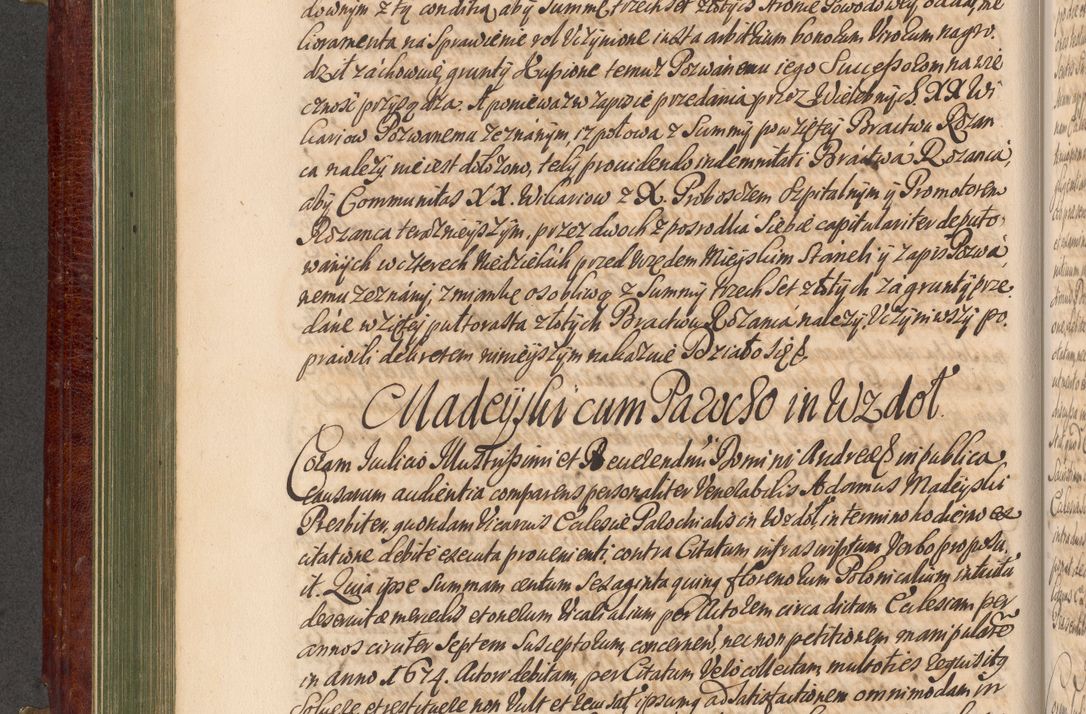 downym z tą conditią aby Summę trzech set złotych Stronie Powodowey oddał, me
lioramenta na Sprawienie rol Uczynione iuxta arbitrium bonorum Virorum nagro
dził záchowuie, grunty Kupione temuż Pozwánemu iego Successorom na wie
czność przysądza. A ponieważ w zapisie przedania przez Wielebnych XX Wi
kariow Pozwanemu zeznánym, iż połowa z Summy pomięney Bractwu Rozan
ca należy nie iest dołożono, tedy providendo indemnitati Bráctwá Rozancá,
aby Communitas XX. Wikariow z X. Proboszczem Szpitalnym y Promotorem
Rozanca terażnieyszym, przez dwoch z posrodka Siebie capitulariter deputo
wanych w czterech Niedzielách przed Urzędem Mieyskim Stáneli y zapis Pozwá
nemu zeznány, zmiankę osobliwą z Summy trzech set złotych zá grunty prze
dáne wziętey pułtorasta złotych Bractwu Rozanca należy, Uczyniwszy po
prawili dekretem ninieyszym nakazuie Działo się
Madeyski cum Parocho in Wzdoł.
Coram Iudicio Illustrissimi et Reverendissimi Domini Andreæ in publica
Causarum audientia comparens personaliter Venerabilis Adamus Madeyski
Presbiter, quondam Vicarius Ecclesiæ Parochialis in Wzdoł in termino hodierno ex
citatione debité executa provenienti contra Citatum infrascriptum Verbo proposu
it. Quia ipse Summam centum Sexaginta quinq florenorum Polonicalium intuitu
deservitæ mercedis et onerum Vicarialium per Actorem circa dictam Ecclesiam per
annos circiter Septem Susceptorum, concernen, nec non petitionem manipularem
in anno 1674. Actori debitam, per Citatum Vero collectam, multoties requisitq
Solvere et restituere non Vult et recusat, ipsumq ad satisfactionem omnimodam in